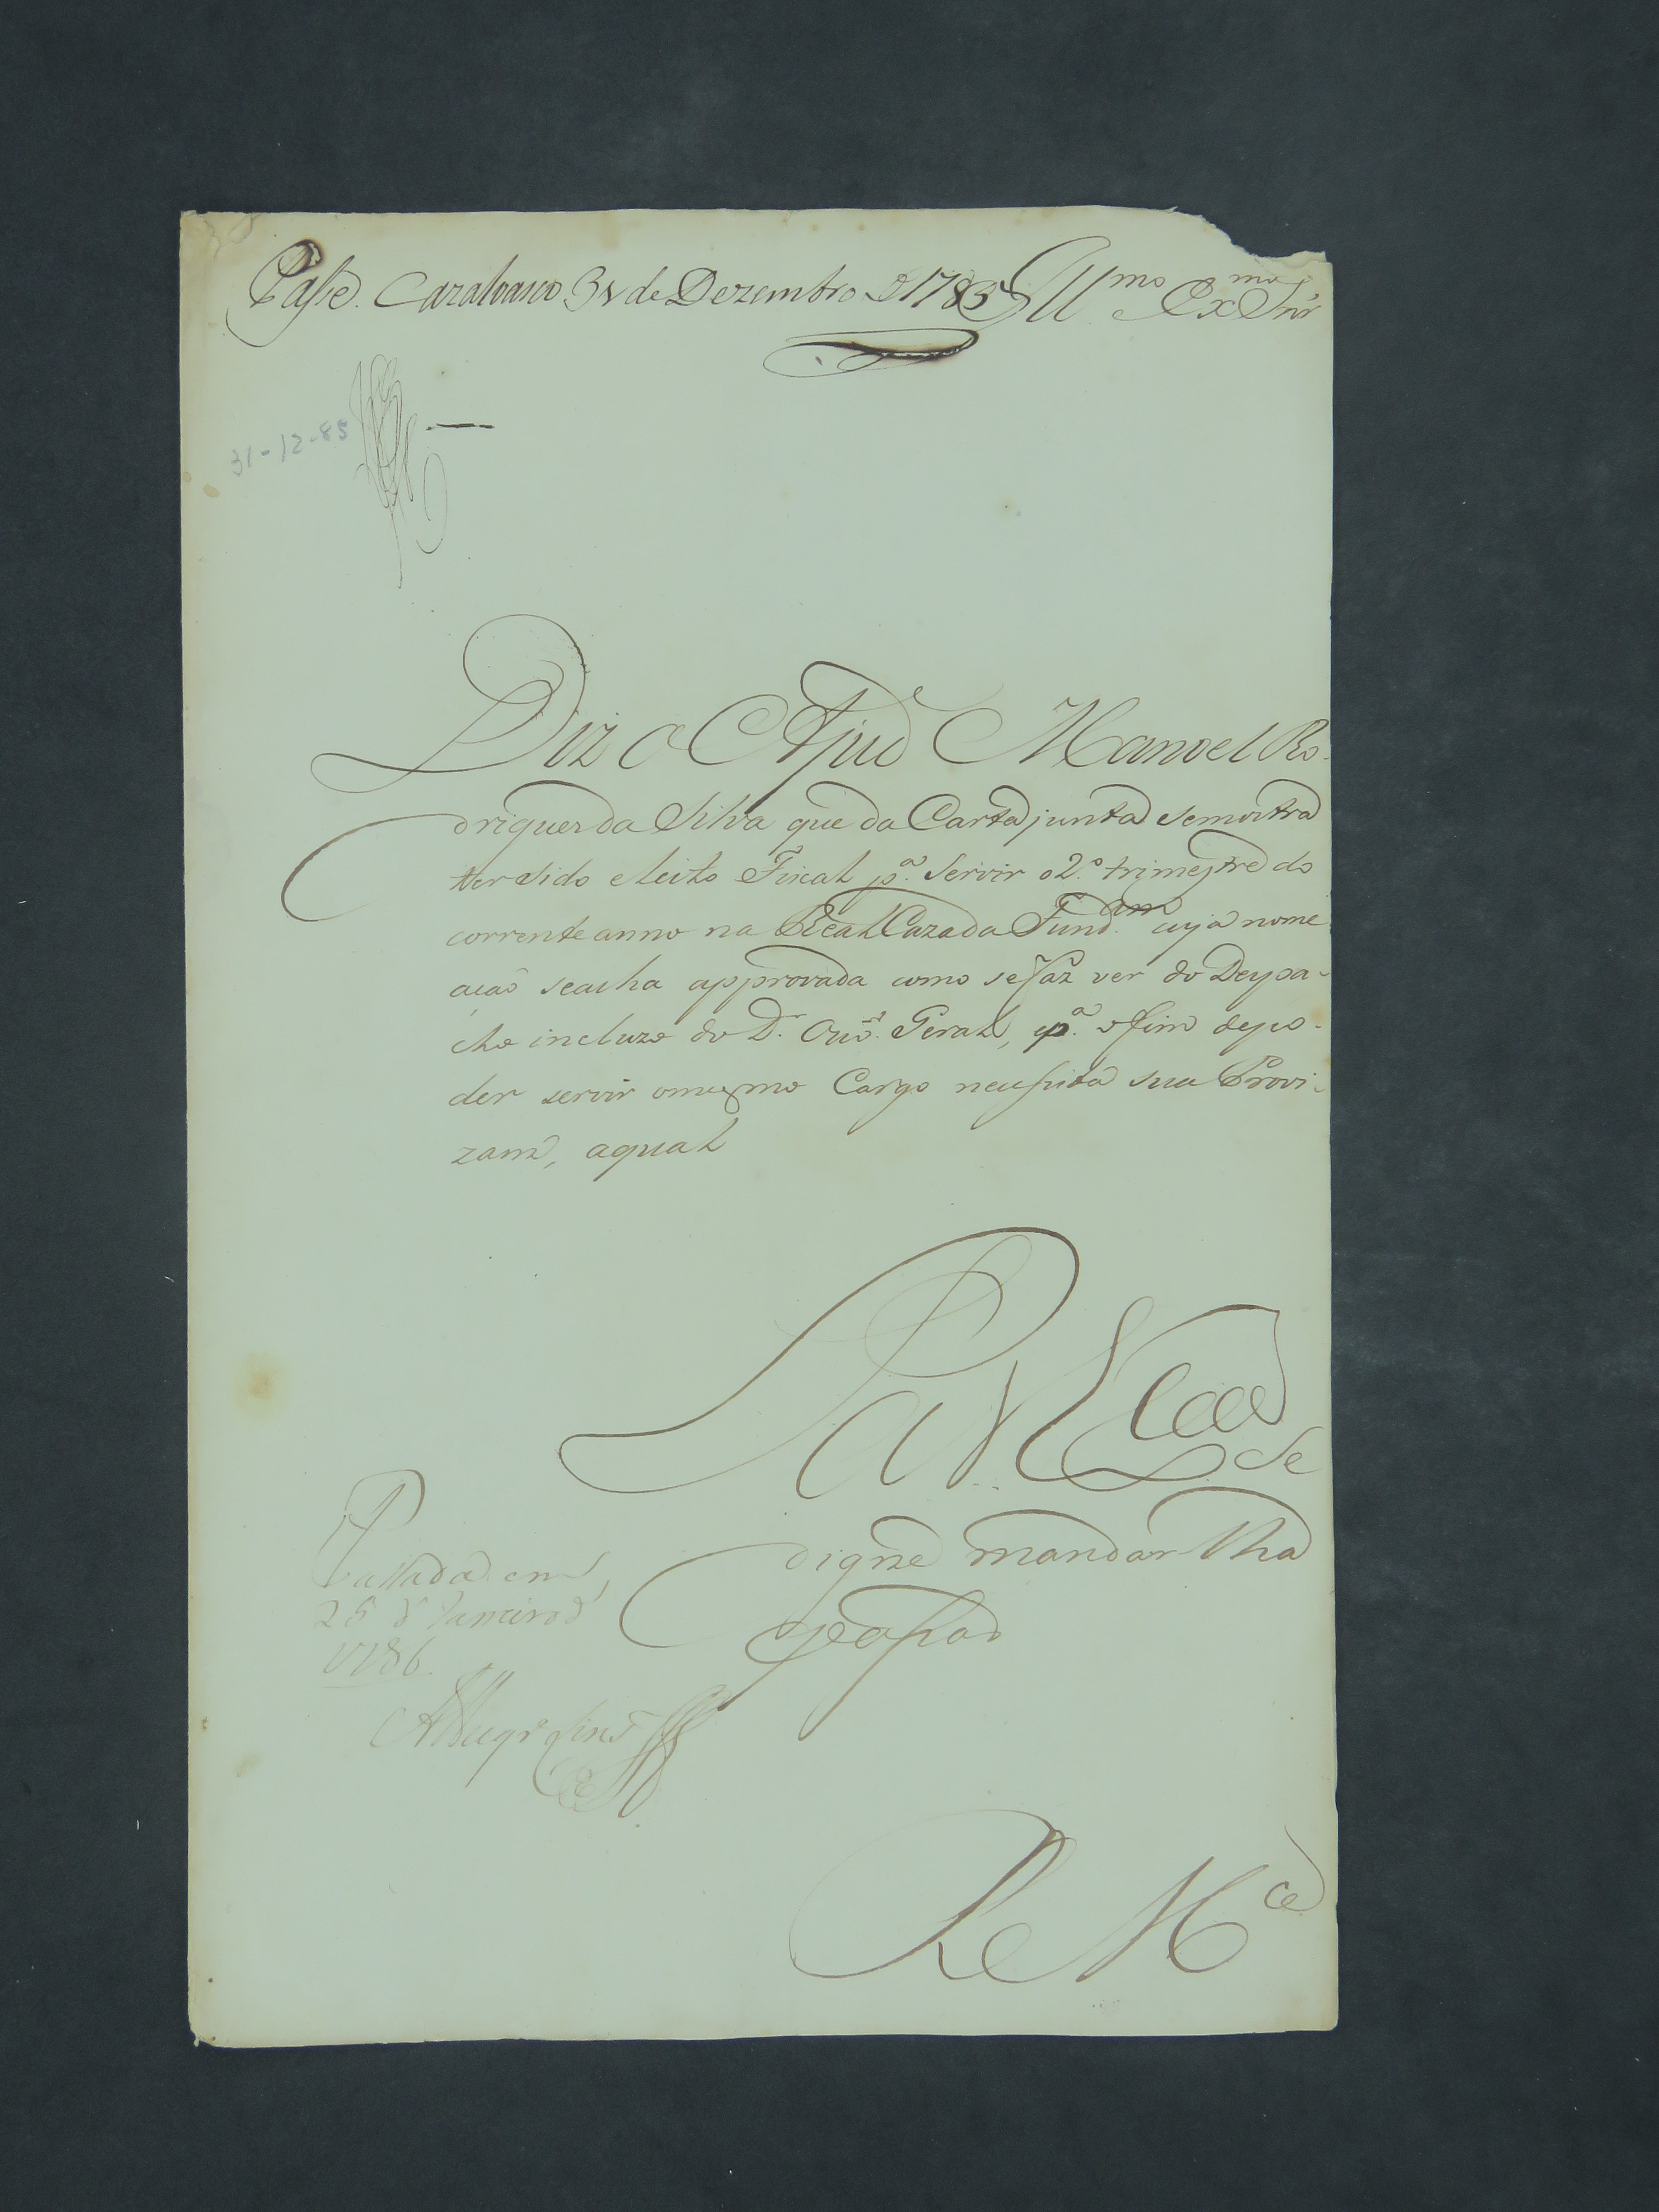 Passe. Cazalvasco 31 de Dezembro d 1785 Illmo Exmo Snr
31-12-85
Diz o Ajud Manoel Ro-
drigues da Silva que da Carta junta se mostra
ter sido eleito Fiscal pa. servir o 2º. trimestre do
corrente anno na Real Caza da Fundam cuja nome
açaõ se acha approvada como se faz ver do Despa-
cho incluzo do Dr. Ouvor. Geral, e pa. o fim de po-
der servir o mesmo Cargo necessita sua Provi-
zam, a qual
Pa. V Exca se
digne mandar lha
passar
Passada em
25 d Janeiro d
1786.
R e Mce